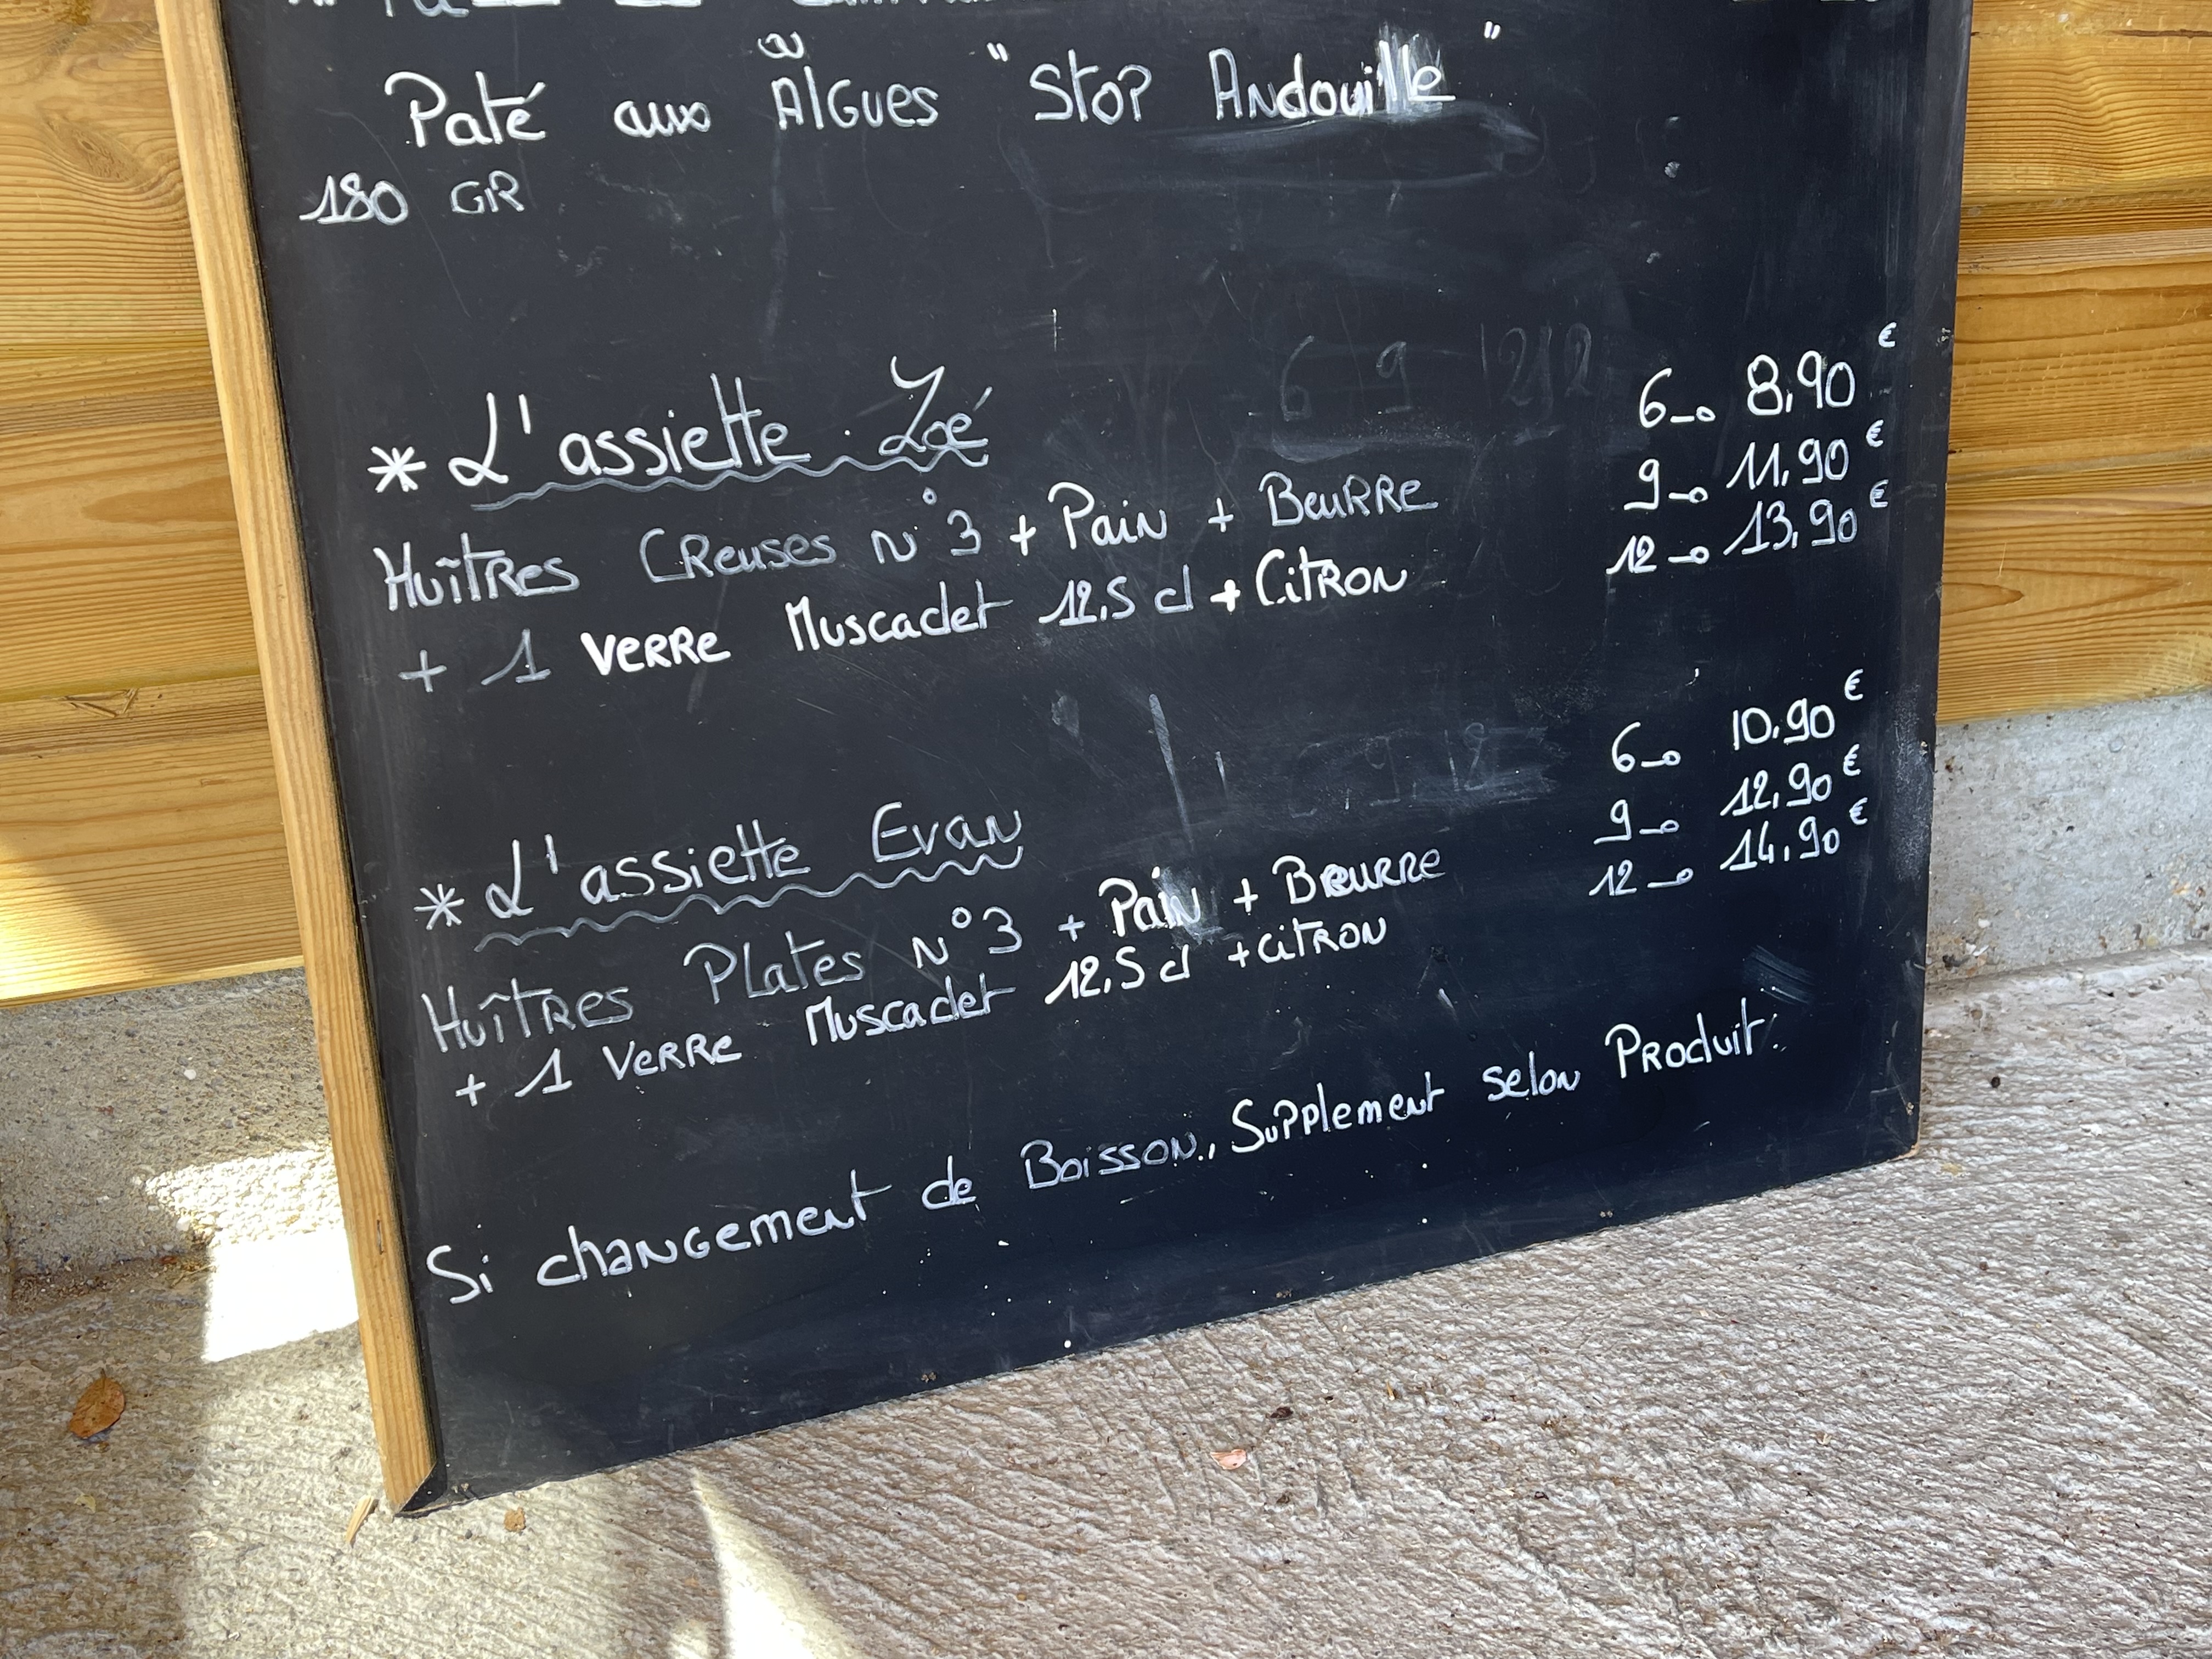 ou
Paté aux Algues "Stop Andouille"
180 GR
* L'assiette Zoé
6 → 8,90 €
9 → 11,90 €
12 → 13,90 €
Huîtres Creuses N°3 + Pain + Beurre
+ 1 Verre Muscadet 12,5 cl + Citron
* L'assiette Evan
6 → 10,90 €
9 → 12,90 €
12 → 14,90 €
Huîtres Plates N°3 + Pain + Beurre
+ 1 Verre Muscadet 12,5 cl + Citron
Si changement de Boisson, Supplement selon Produit.